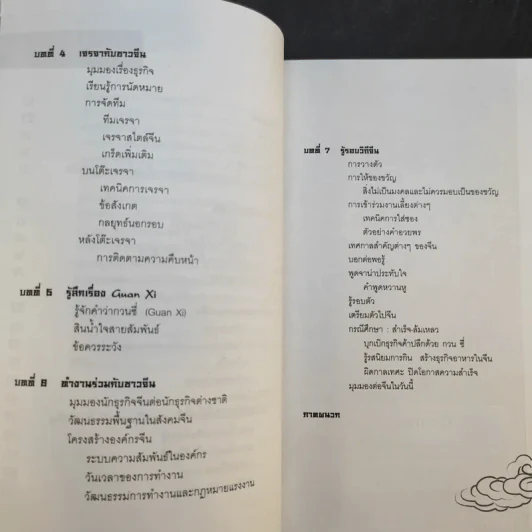 บทที่ 4 เจรจากับชาวจีน
มุมมองเรื่องธุรกิจ
เรียนรู้การนัดหมาย
การจัดทีม
ทีมเจรจา
เจรจาสไตล์จีน
เกร็ดเพิ่มเติม
บนโต๊ะเจรจา
เทคนิคการเจรจา
ข้อสังเกต
กลยุทธ์นอกรอบ
หลังโต๊ะเจรจา
การติดตามความคืบหน้า
บทที่ 5 รู้ลึกเรื่อง Guan Xi
รู้จักคำว่ากวนซี่ (Guan Xi)
สินน้ำใจสายสัมพันธ์
ข้อควรระวัง
บทที่ 6 ทำงานร่วมกับชาวจีน
มุมมองนักธุรกิจจีนต่อนักธุรกิจต่างชาติ
วัฒนธรรมพื้นฐานในสังคมจีน
โครงสร้างองค์กรจีน
ระบบความสัมพันธ์ในองค์กร
วันเวลาของการทำงาน
วัฒนธรรมการทำงานและกฎหมายแรงงาน
บทที่ 7 รู้รอบวิถีจีน
การวางตัว
การให้ของขวัญ
สิ่งไม่เป็นมงคลและไม่ควรมอบเป็นของขวัญ
การเข้าร่วมงานเลี้ยงต่างๆ
เทคนิคการใส่ซอง
ตัวอย่างคำอวยพร
เทศกาลสำคัญต่างๆ ของจีน
บอกต่อพอรู้
พูดจาน่าประทับใจ
คำพูดหวานหู
รู้รอบตัว
เตรียมตัวไปจีน
กรณีศึกษา : สำเร็จ-ล้มเหลว
บุกเบิกธุรกิจค้าปลีกด้วย กวน ซี่
รู้รสนิยมการกิน สร้างธุรกิจอาหารในจีน
ผิดกาลเทศะ ปิดโอกาสความสำเร็จ
มุมมองต่อจีนในวันนี้
ภาคผนวก